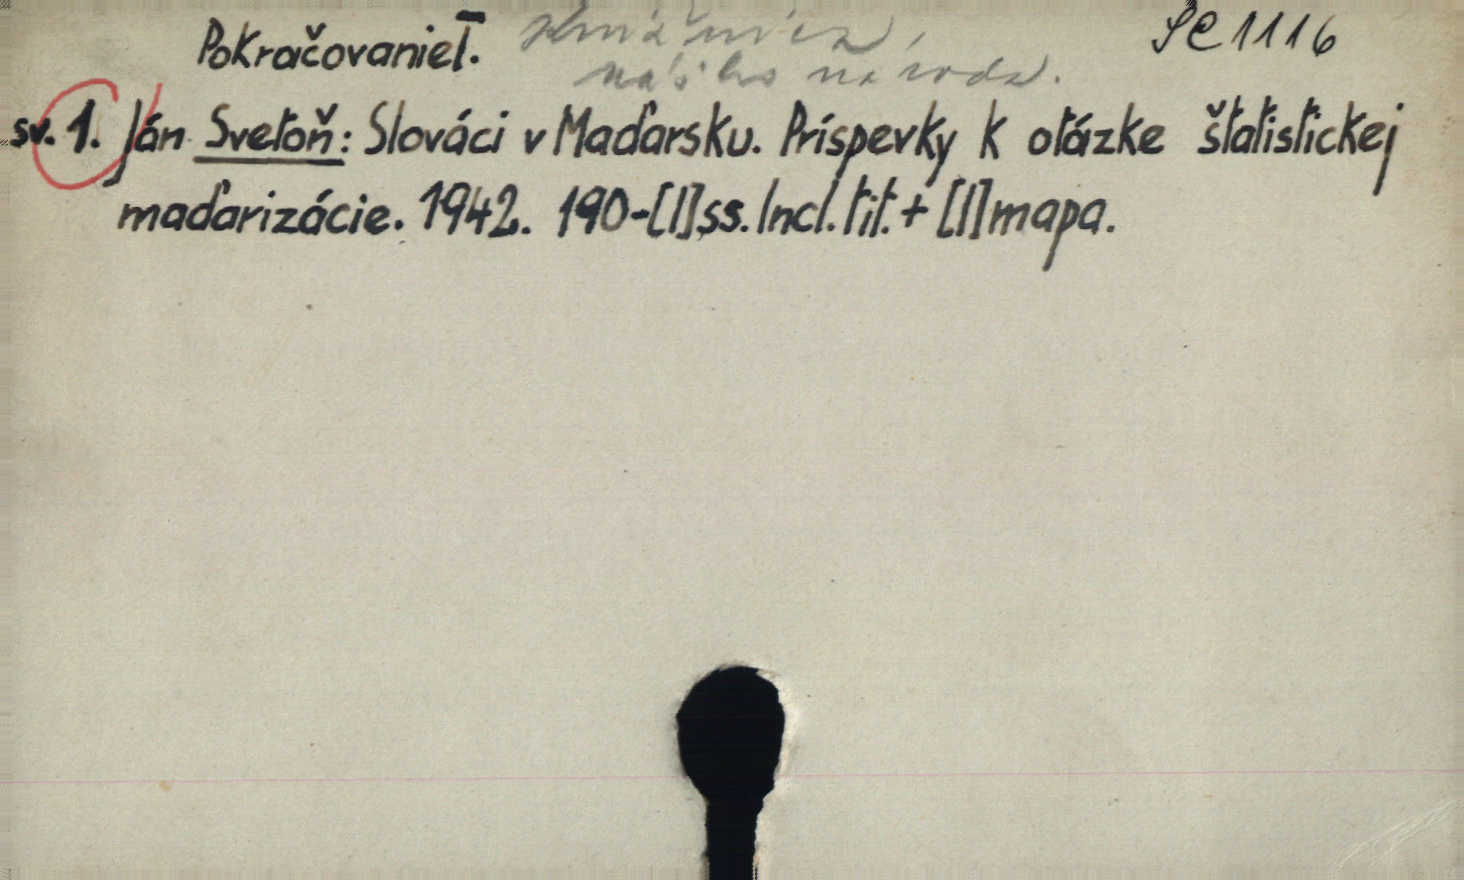 Pokračovanie I. SC 1116
nášho národa.
sv. 1. Ján Svetoň: Slováci v Maďarsku. Príspevky k otázke štatistickej
maďarizácie. 1942. 190-[1]ss. Incl. tit. + [1] mapa.